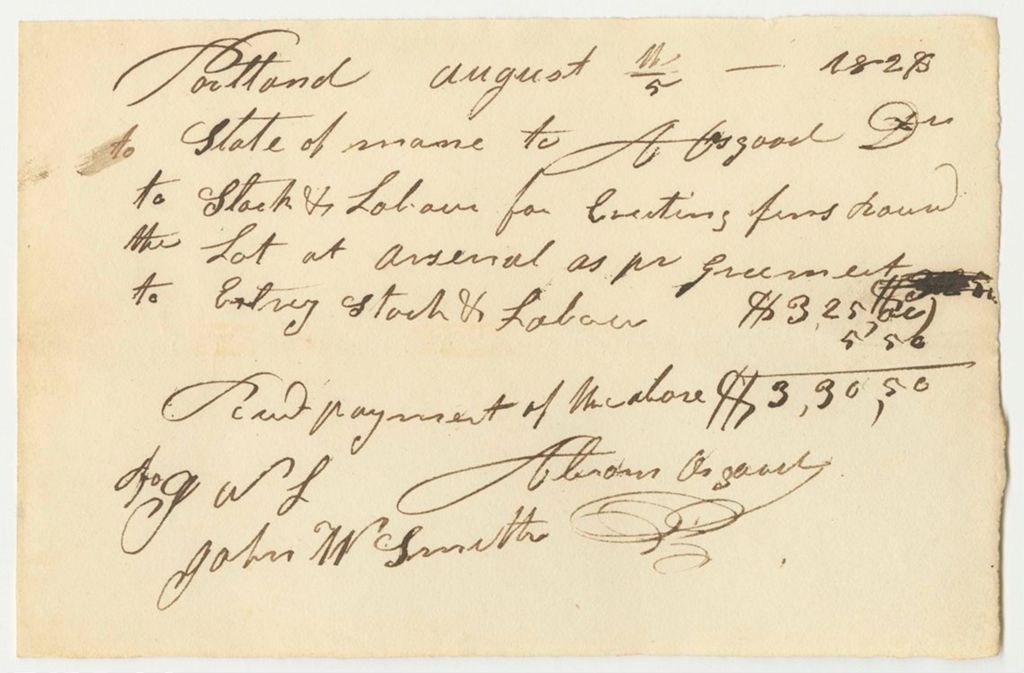 Portland august th/5 — 1828
to State of mane to A Osgood Dr
to Stock & Labour for Erecting fens round
the Lot at arsenal as pr Greement
to Extry Stock & Labour $3,25,00
5,50
Recd payment of the above $3,30,50
Abram Osgood
John W Smith